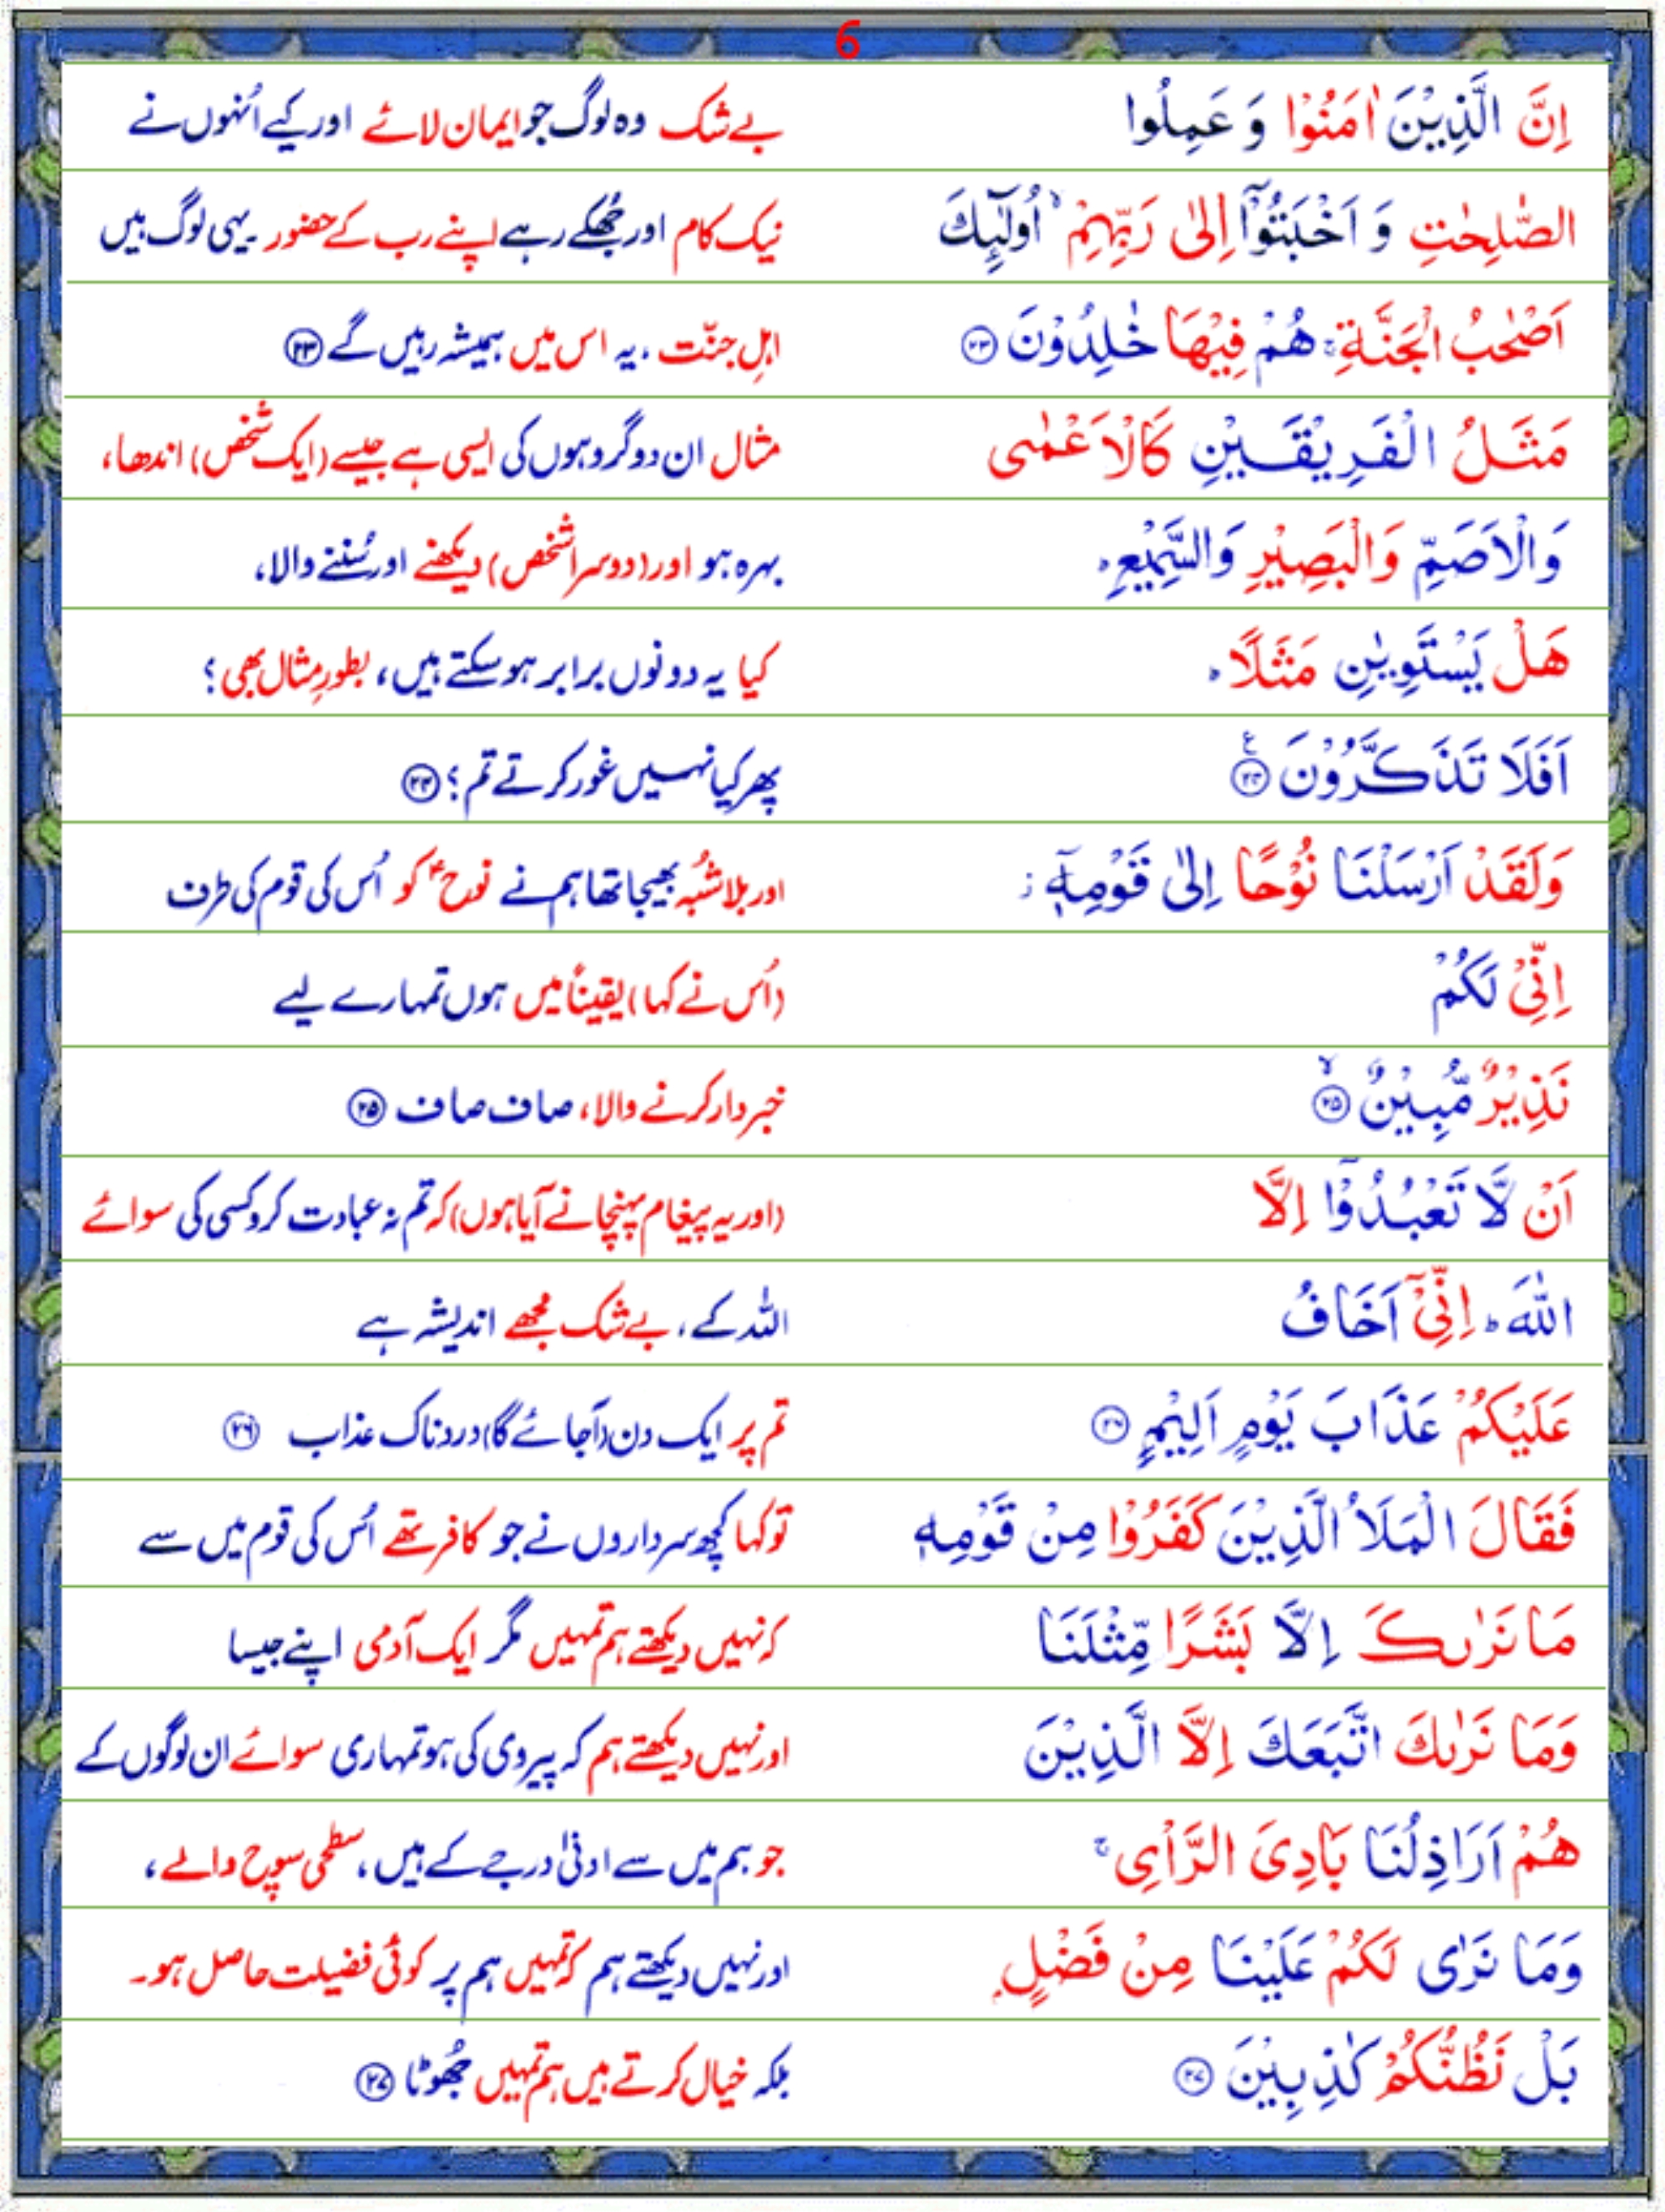 6
اِنَّ الَّذِيْنَ اٰمَنُوْا وَ عَمِلُوا بے شک وہ لوگ جو ایمان لائے اور کیے اُنہوں نے
الصّٰلِحٰتِ وَ اَخْبَتُوْٓا اِلٰى رَبِّهِمْ ۙ اُولٰٓئِكَ نیک کام اور جُھکے رہے اپنے رب کے حضور ۔ یہی لوگ ہیں
اَصْحٰبُ الْجَنَّةِ ۚ هُمْ فِيْهَا خٰلِدُوْنَ ۲۳ اہلِ جنّت ، یہ اس میں ہمیشہ رہیں گے ۲۳
مَثَلُ الْفَرِيْقَيْنِ كَالْاَعْمٰى مثال ان دو گروہوں کی ایسی ہے جیسے (ایک شخص) اندھا،
وَالْاَصَمِّ وَالْبَصِيْرِ وَالسَّمِيْعِ ؕ بہرہ ہو اور (دوسرا شخص) دیکھنے اور سُننے والا،
هَلْ يَسْتَوِيٰنِ مَثَلًا ؕ کیا یہ دونوں برابر ہو سکتے ہیں، بطورِ مثال بھی ؟
اَفَلَا تَذَكَّرُوْنَ ۲۴ ع پھر کیا نہیں غور کرتے تم ؟ ۲۴
وَلَقَدْ اَرْسَلْنَا نُوْحًا اِلٰى قَوْمِهٖٓ ز اور بلاشُبہ بھیجا تھا ہم نے نوح ؑ کو اُس کی قوم کی طرف
اِنِّىْ لَكُمْ (اُس نے کہا) یقیناً میں ہوں تمہارے لیے
نَذِيْرٌ مُّبِيْنٌ ۙ ۲۵ خبردار کرنے والا، صاف صاف ۲۵
اَنْ لَّا تَعْبُدُوْٓا اِلَّا (اور یہ پیغام پہنچانے آیا ہوں) کہ تم نہ عبادت کرو کسی کی سوائے
اللّٰهَ ؕ اِنِّىْٓ اَخَافُ اللہ کے، بے شک مجھے اندیشہ ہے
عَلَيْكُمْ عَذَابَ يَوْمٍ اَلِيْمٍ ۲۶ تم پر ایک دن (آجائے گا) دردناک عذاب ۲۶
فَقَالَ الْمَلَاُ الَّذِيْنَ كَفَرُوْا مِنْ قَوْمِهٖ تو کہا کچھ سرداروں نے جو کافر تھے اُس کی قوم میں سے
مَا نَرٰىكَ اِلَّا بَشَرًا مِّثْلَنَا کہ نہیں دیکھتے ہم تمہیں مگر ایک آدمی اپنے جیسا
وَمَا نَرٰىكَ اتَّبَعَكَ اِلَّا الَّذِيْنَ اور نہیں دیکھتے ہم کہ پیروی کی ہو تمہاری سوائے ان لوگوں کے
هُمْ اَرَاذِلُنَا بَادِىَ الرَّاْىِ ۚ جو ہم میں سے ادنیٰ درجے کے ہیں ، سطحی سوچ والے ،
وَمَا نَرٰى لَكُمْ عَلَيْنَا مِنْ فَضْلٍۭ اور نہیں دیکھتے ہم کہ تمہیں ہم پر کوئی فضیلت حاصل ہو۔
بَلْ نَظُنُّكُمْ كٰذِبِيْنَ ۲۷ بلکہ خیال کرتے ہیں ہم تمہیں جُھوٹا ۲۷